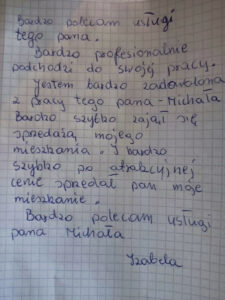 Bardzo polecam usługi
tego pana.
Bardzo profesionalnie
podchodzi do swojej pracy.
Jestem bardzo zadowolona
z pracy tego pana - Michała
Bardzo szybko zajął się
sprzedażą mojego
mieszkania. I bardzo
szybko po atrakcyjnej
cenie sprzedał pan moje
mieszkanie.
Bardzo polecam usługi
pana Michała
Izabela